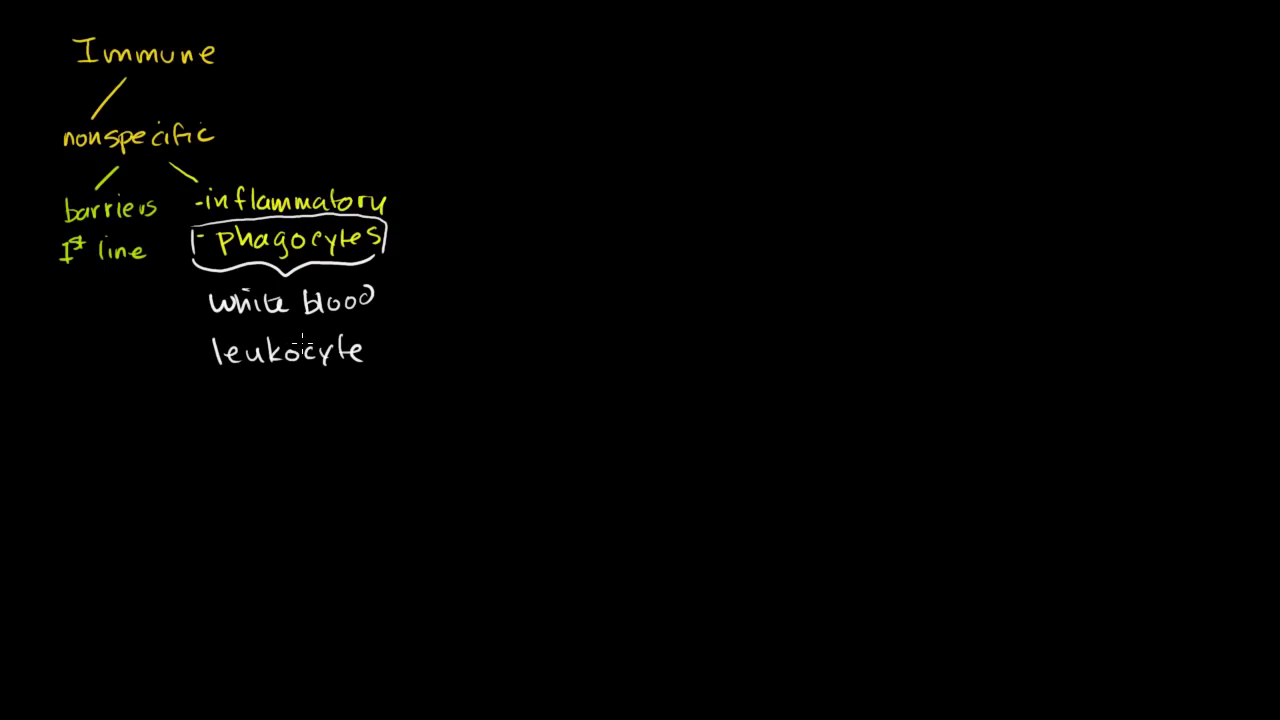 Immune
nonspecific
barriers
1st line
-inflammatory
- phagocytes
white blood
leukocyte